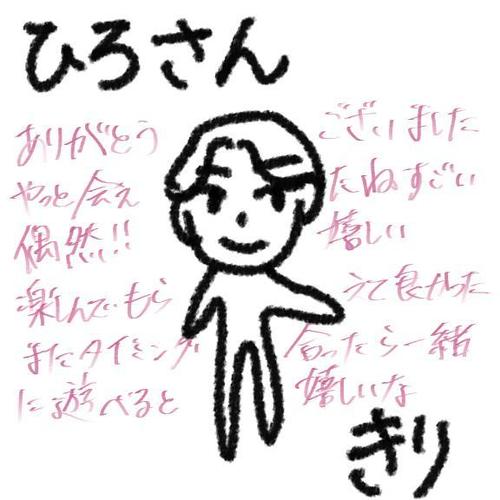 ひろさん
ありがとう ございました
やっと会え たねすごい
偶然!! 嬉しい
楽しんでもら うて良かった
またタイミング 合ったら一緒
に遊べると 嬉しいな
きり